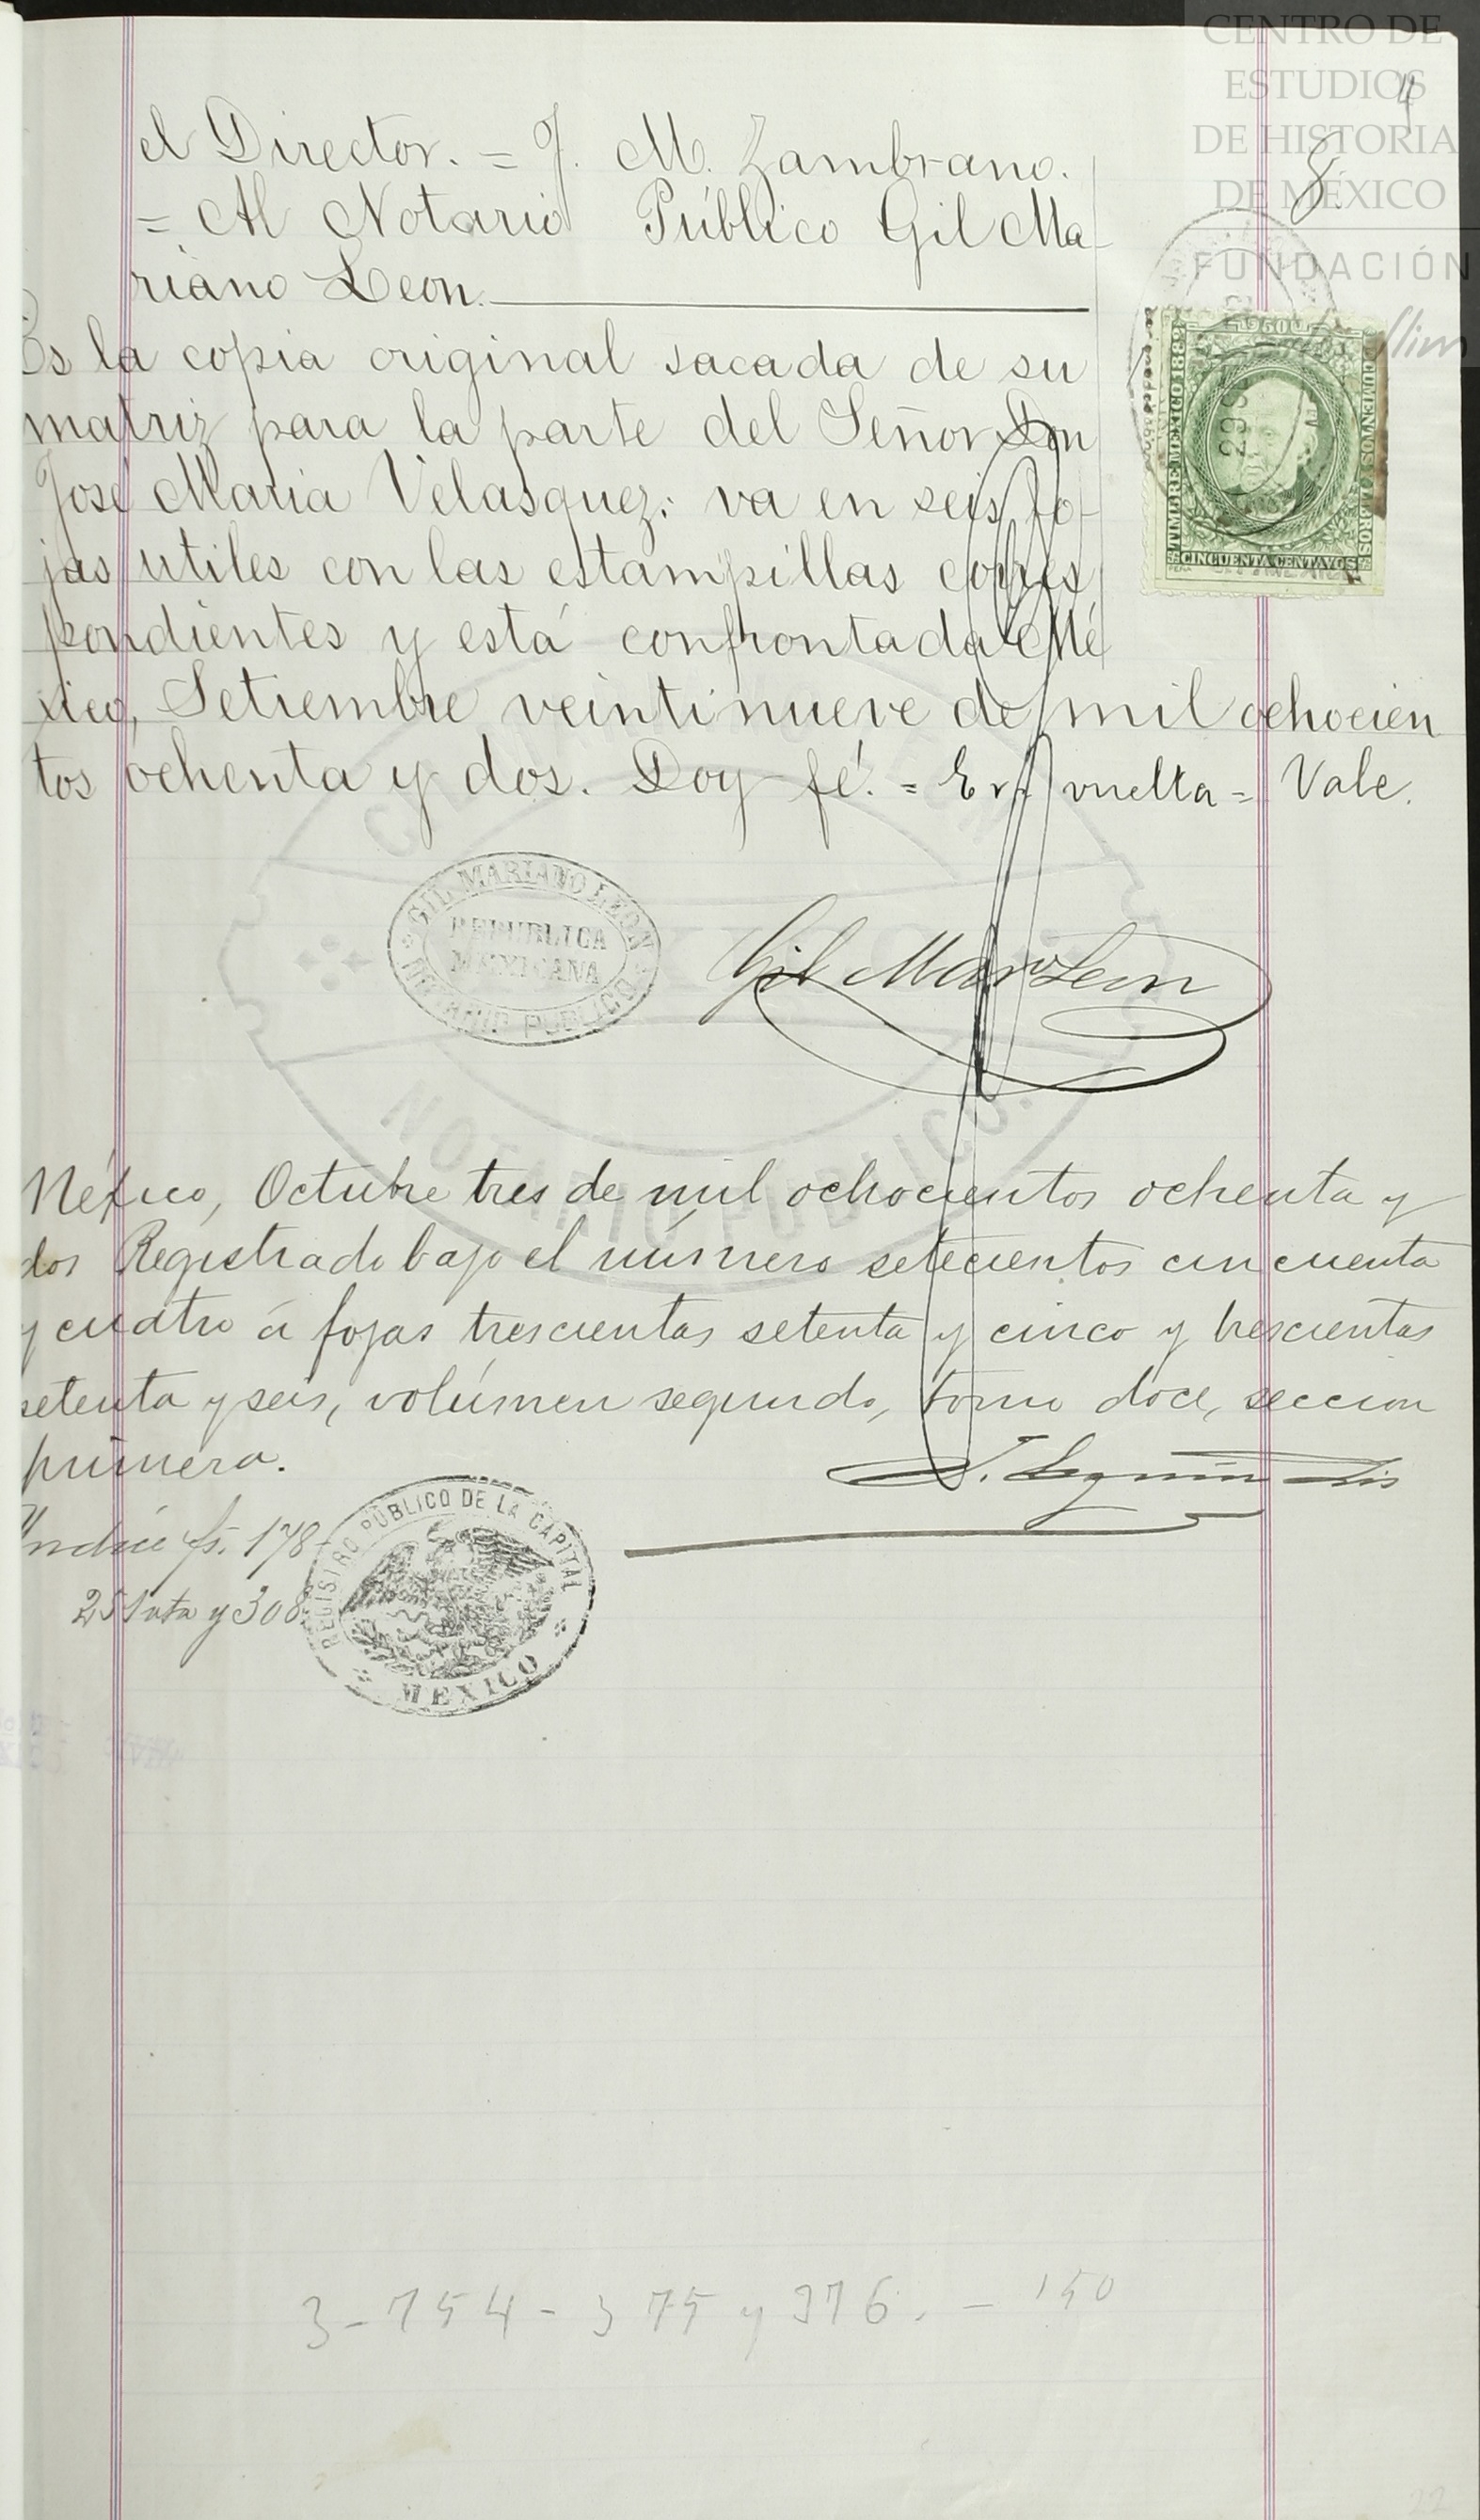 CENTRO DE
ESTUDIOS
DE HISTORIA
DE MÉXICO
FUNDACIÓN
Carlos Slim
4
8.
el Director. = J. M. Zambrano.
= Al Notario Público Gil Ma-
riano Leon.
Es la copia original sacada de su
matriz para la parte del Señor Don
José Maria Velasquez: va en seis fo-
jas utiles con las estampillas corres
pondientes y está confrontada Mé
xico, Setiembre veintinueve de mil ochocien
tos ochenta y dos. Doy fé. = Enf vuelta = Vale.
TIMBRE MEXICO 1882
DOCUMENTOS Y LIBROS
CINCUENTA CENTAVOS
GIL MARIANO LEON
REPUBLICA
MEXICANA
NOTARIO PUBLICO
Gil Marº Leon
NOTARIO PUBLICO.
México, Octubre tres de mil ochocientos ochenta y
dos Registrado bajo el número setecientos cincuenta
y cuatro á fojas trescientas setenta y cinco y trescientas
setenta y seis, volúmen segundo, tomo doce, seccion
primera.
Yndice fs. 178
251 vta y 308
REGISTRO PÚBLICO DE LA CAPITAL
MEXICO
3 - 754 - 375 y 376. - 150